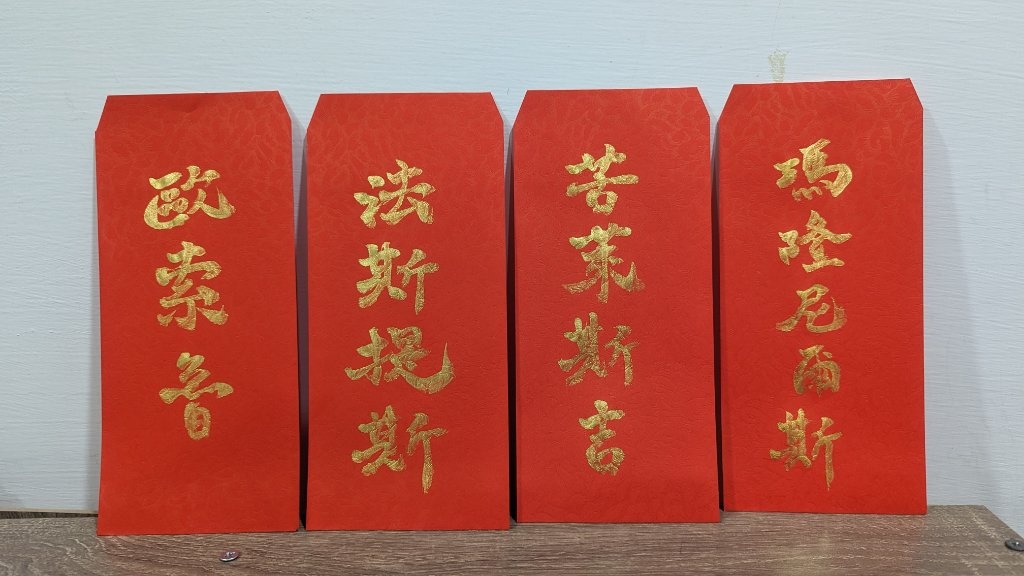 歐索魯
法斯提斯
苦萊斯吉
瑪隆尼爾斯